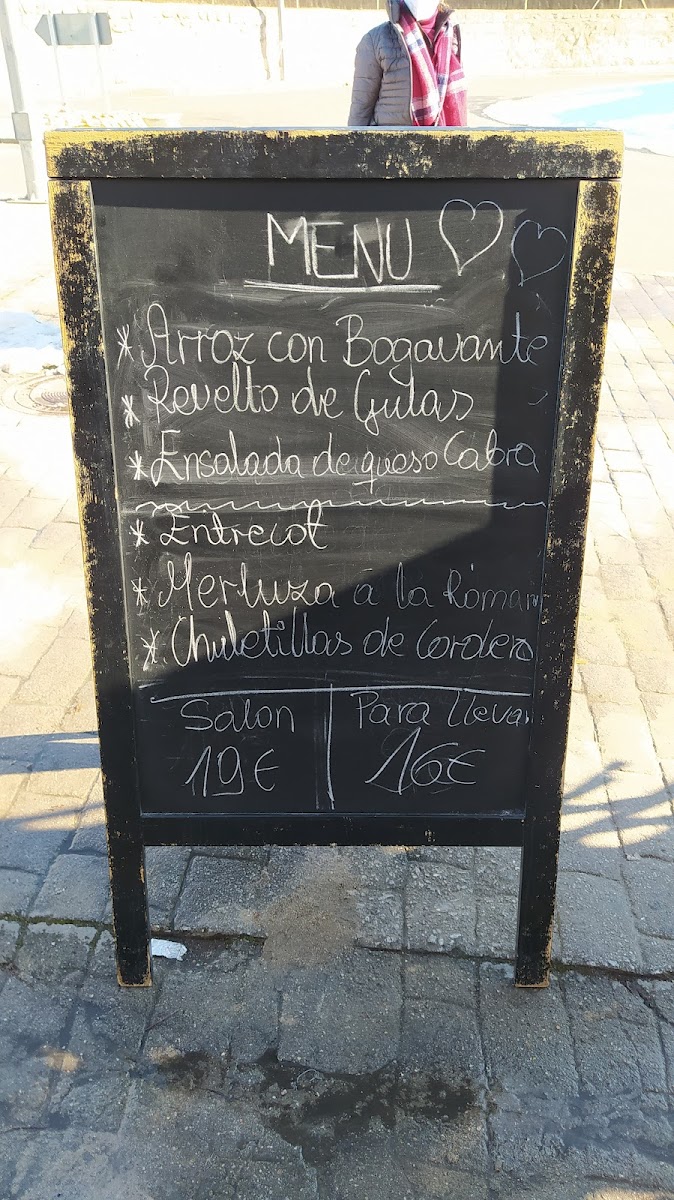 MENU
* Arroz con Bogavante
* Revelto de Gulas
* Ensalada de queso Cabra
* Entrecot
* Merluza a la Roman
* Chuletillas de Cordero
Salon
19€
Para Llevar
16€